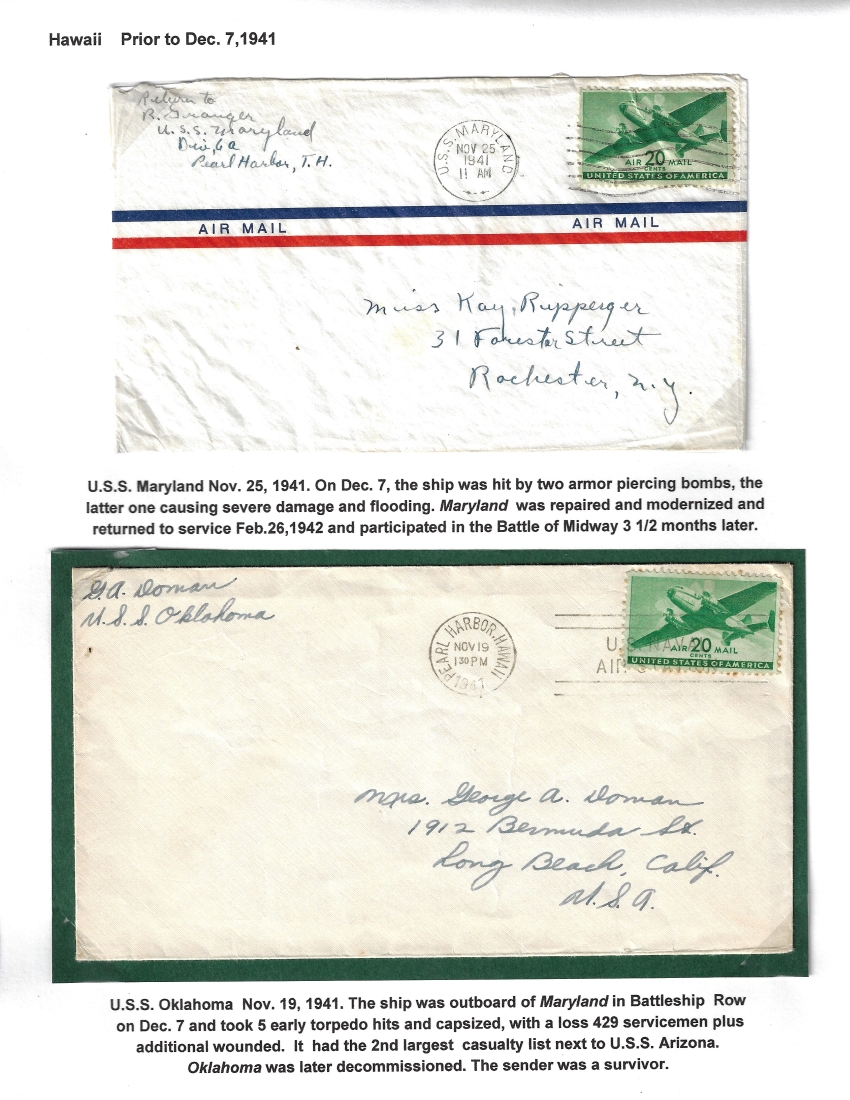 Hawaii Prior to Dec. 7,1941
Return to
R. Granger
U.S.S. Maryland
Div. 6a
Pearl Harbor, T.H.
U.S.S. MARYLAND
NOV 25
1941
11 AM
AIR 20 MAIL
CENTS
UNITED STATES OF AMERICA
AIR MAIL AIR MAIL
Miss Kay Ripperger
31 Forester Street
Rochester, N.Y.
U.S.S. Maryland Nov. 25, 1941. On Dec. 7, the ship was hit by two armor piercing bombs, the
latter one causing severe damage and flooding. Maryland was repaired and modernized and
returned to service Feb.26,1942 and participated in the Battle of Midway 3 1/2 months later.
G.A. Doman
U.S.S. Oklahoma
PEARL HARBOR, HAWAII
NOV 19
130 PM
1941
U.S. NAVAL
AIR
AIR 20 MAIL
CENTS
UNITED STATES OF AMERICA
Mrs. George A. Doman
1912 Bermuda St.
Long Beach, Calif.
U.S.A.
U.S.S. Oklahoma Nov. 19, 1941. The ship was outboard of Maryland in Battleship Row
on Dec. 7 and took 5 early torpedo hits and capsized, with a loss 429 servicemen plus
additional wounded. It had the 2nd largest casualty list next to U.S.S. Arizona.
Oklahoma was later decommissioned. The sender was a survivor.